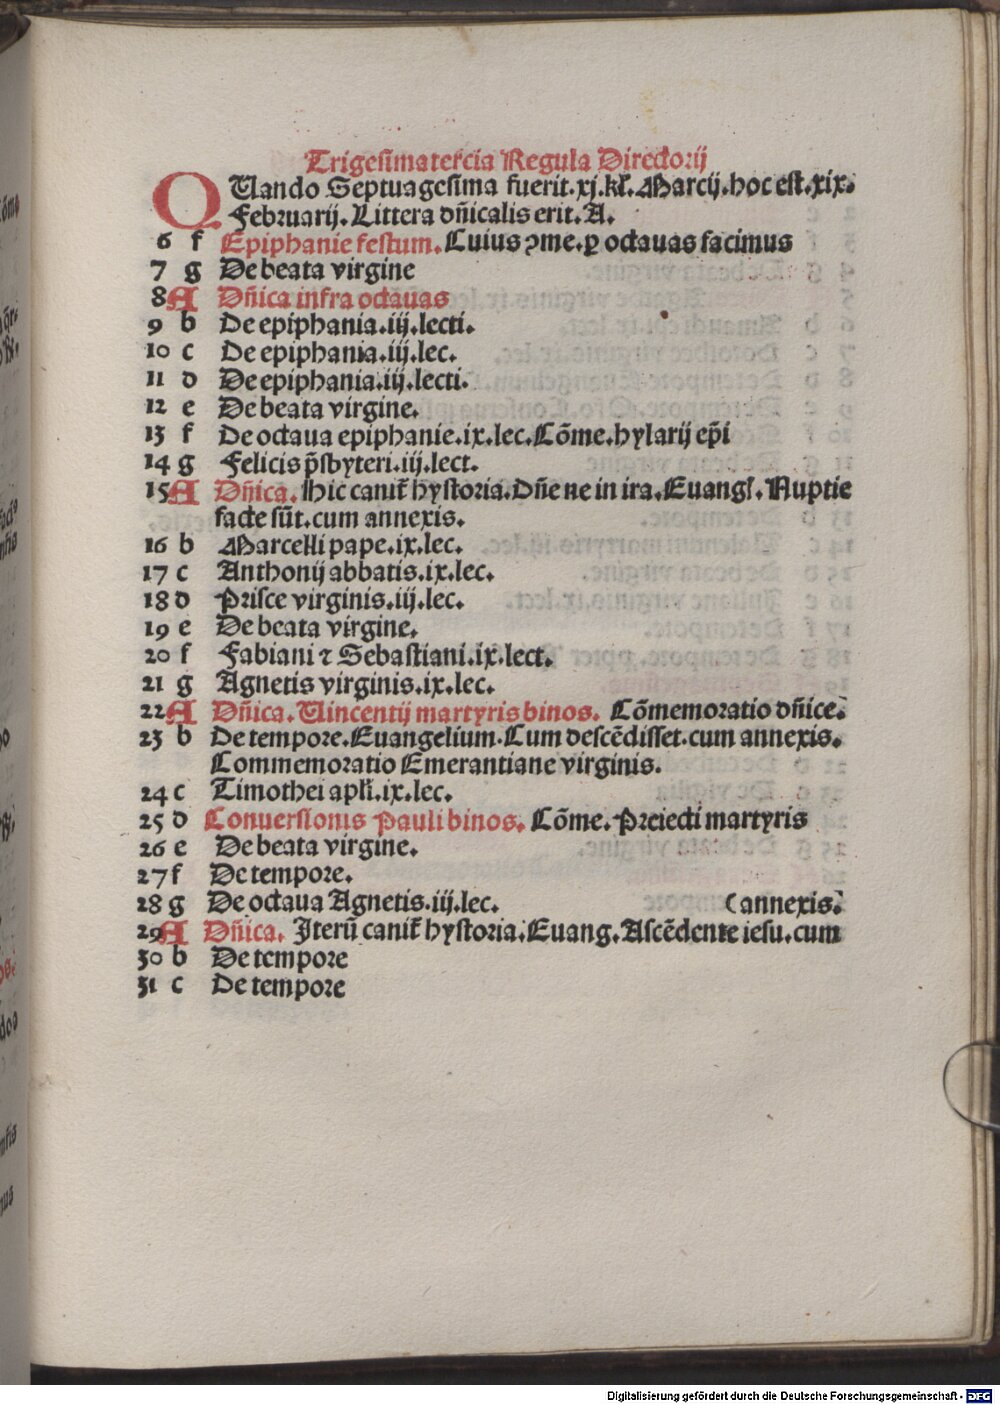 Trigesimatercia Regula Directorij
QUando Septuagesima fuerit.xj.kl̄.Marcij.hoc est.xix.
Februarij.Littera dn̄icalis erit.A.
6 f Epiphanie festum.Cuius ꝯme.ꝑ octauas facimus
7 g De beata virgine
8 A Dn̄ica infra octauas
9 b De epiphania.iij.lecti.
10 c De epiphania.iij.lec.
11 d De epiphania.iij.lecti.
12 e De beata virgine.
13 f De octaua epiphanie.ix.lec.Cōme.hylarij ep̄i
14 g Felicis p̄sbyteri.iij.lect.
15 A Dn̄ica.Hic canit̄ hystoria.Dn̄e ne in ira.Euangl̄.Nuptie
facte sūt.cum annexis.
16 b Marcelli pape.ix.lec.
17 c Anthonij abbatis.ix.lec.
18 d Prisce virginis.iij.lec.
19 e De beata virgine.
20 f Fabiani ⁊ Sebastiani.ix.lect.
21 g Agnetis virginis.ix.lec.
22 A Dn̄ica.Uincentij martyris binos. Cōmemoratio dn̄ice.
23 b De tempore.Euangelium.Cum descēdisset.cum annexis.
Commemoratio Emerantiane virginis.
24 c Timothei apl̄i.ix.lec.
25 d Conuersionis Pauli binos.Cōme.Preiecti martyris
26 e De beata virgine.
27 f De tempore.
28 g De octaua Agnetis.iij.lec. (annexis.
29 A Dn̄ica. Iterū canit̄ hystoria.Euang.Ascēdente iesu.cum
30 b De tempore
31 c De tempore
Digitalisierung gefördert durch die Deutsche Forschungsgemeinschaft - DFG